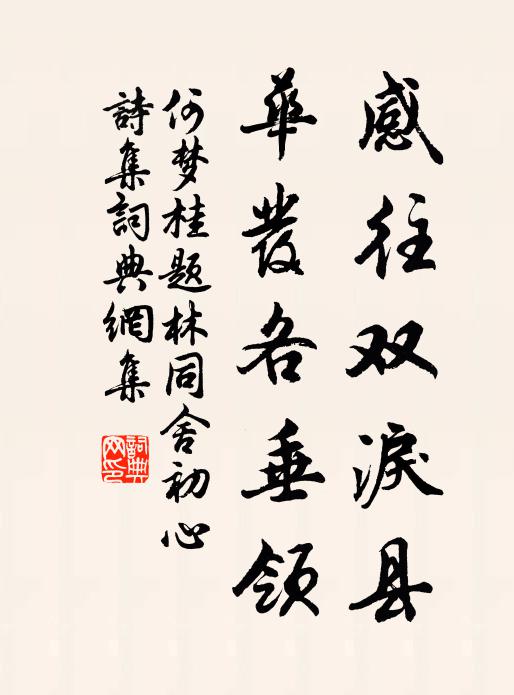 感往双淚县
華發各垂领
何梦桂题林同舍初心
詩集詞典網集
詞典
网印